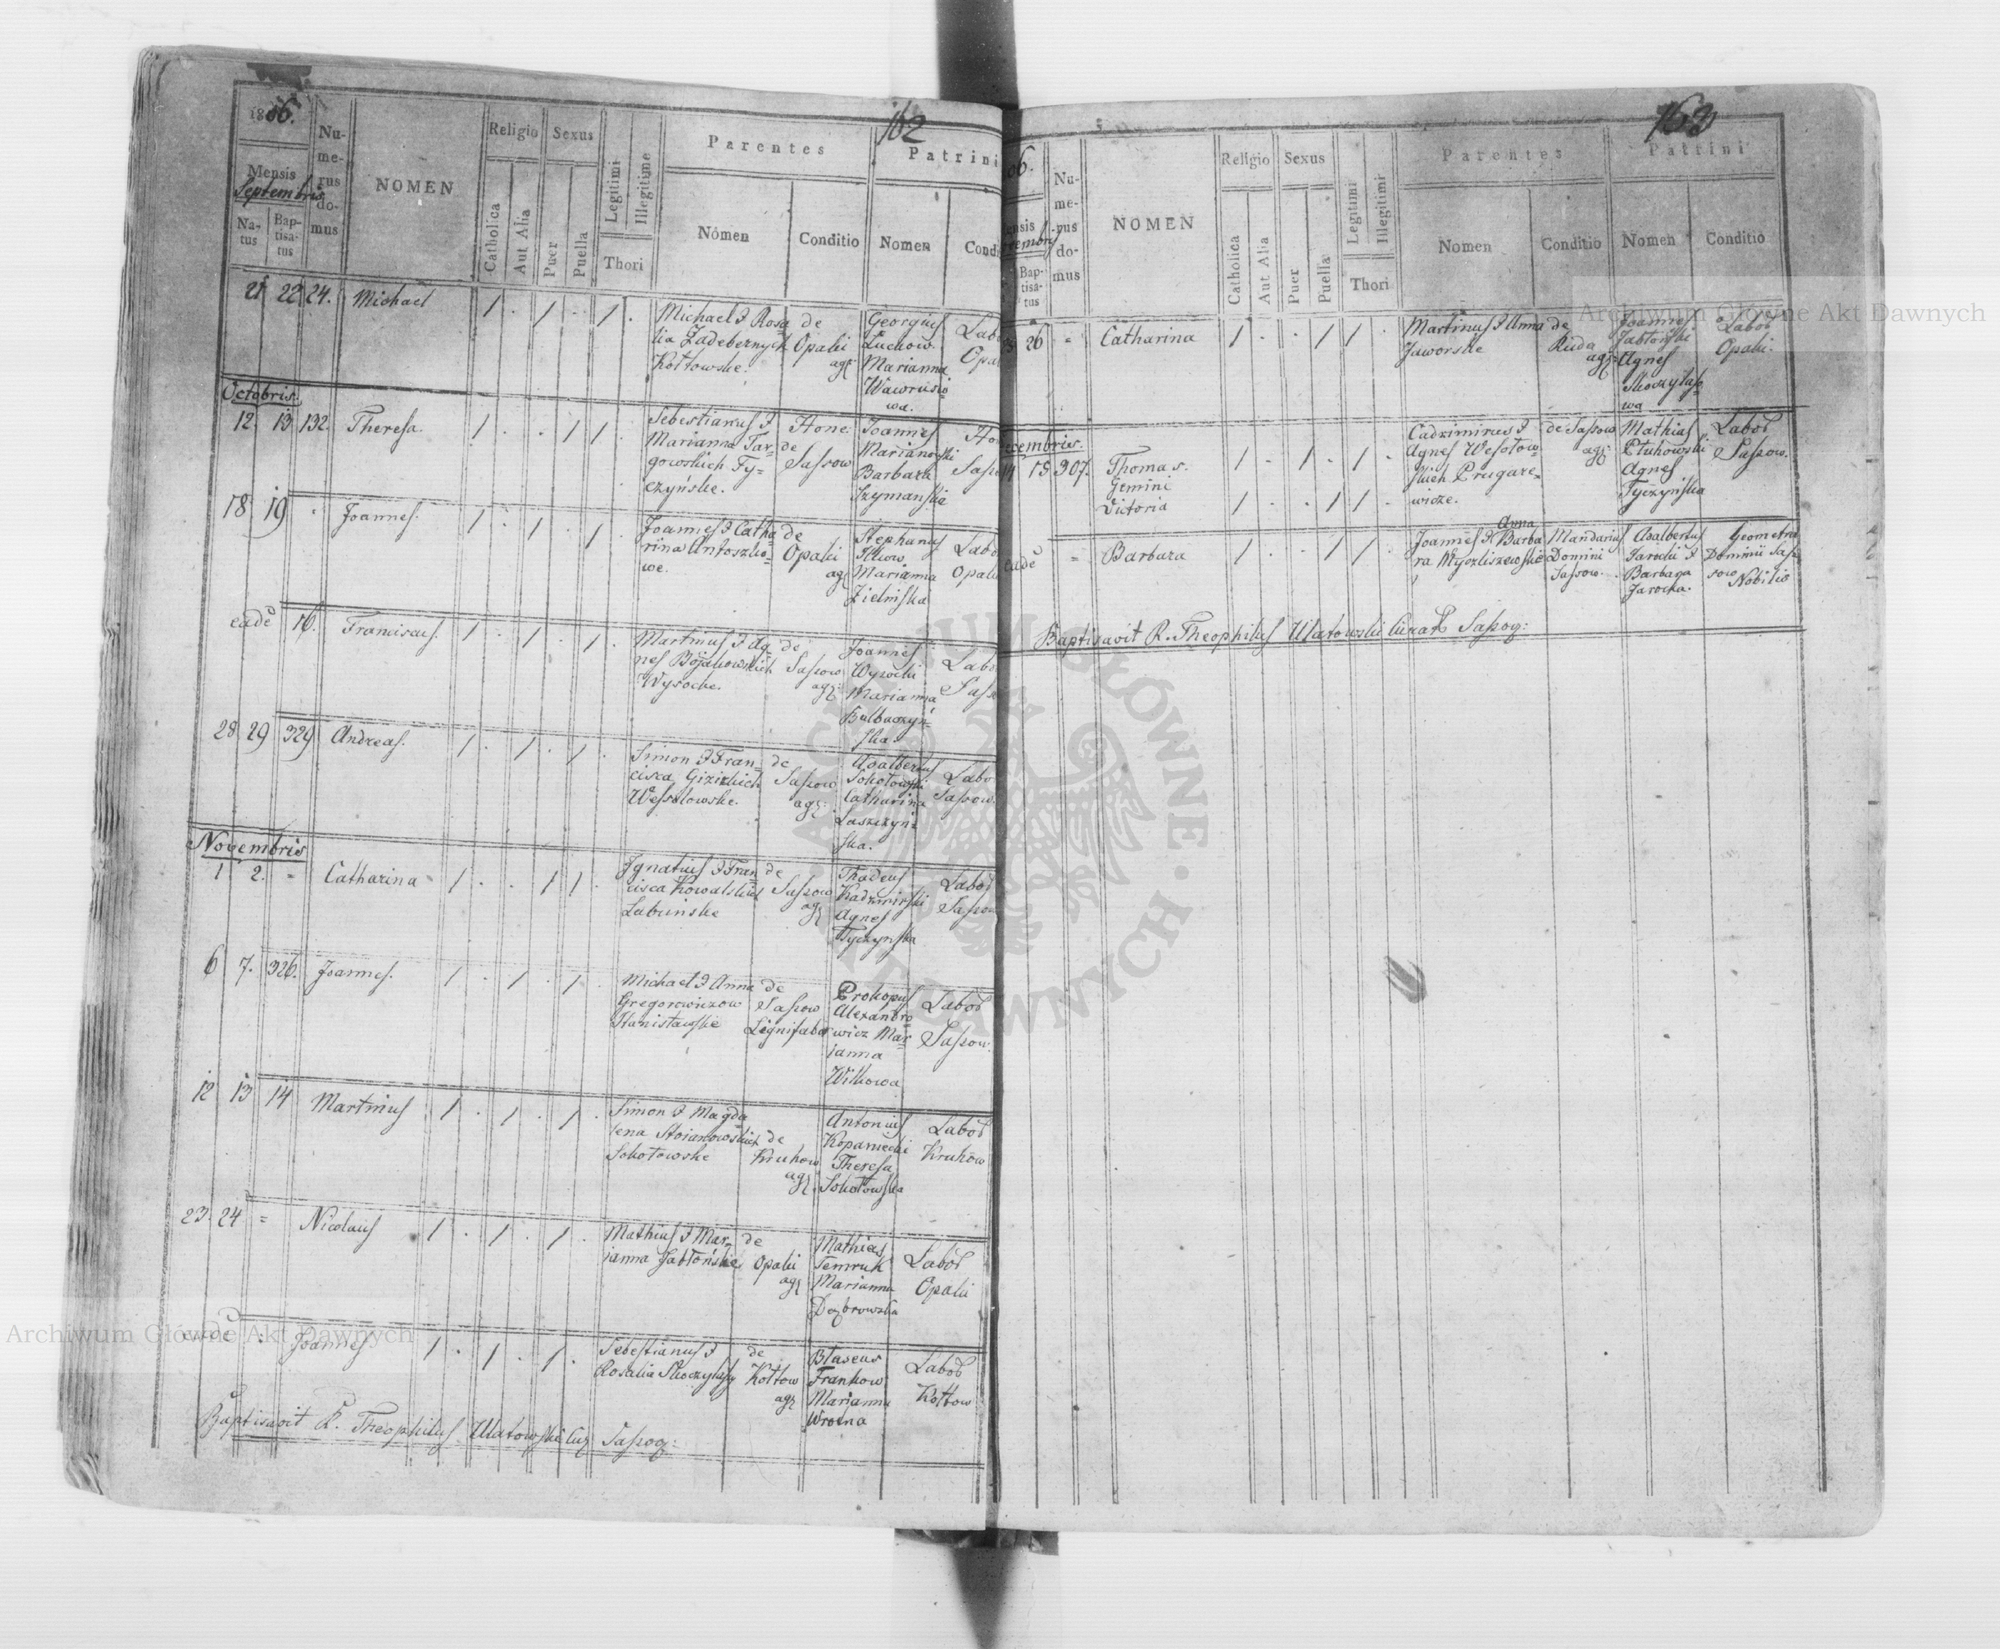 162
1806.
Mensis
Septembris
Na-
tus
Bap-
tisa-
tus
Nu-
me-
rus
do-
mus
NOMEN
Religio
Catholica
Aut Alia
Sexus
Puer
Puella
Legitimi
Illegitime
Thori
Parentes
Nomen
Conditio
Patrini
Nomen
Condi
21 22 24. Michael 1 . 1 . 1 .
Michael & Rosa
lia Zadebernych
Kołtowske.
de
Opaki
agr
Georgius
Łuchow.
Marianna
Wawrusio-
wa.
Labo
Opak
Octobris.
12. 13 132. Theresa. 1 . . 1 1 .
Sebestianus &
Marianna Tar-
gowskich Ty-
czyńske.
Hone:
de
Sassow
Joannes
Marianowski
Barbara
Szymanske
Hon
Sasso
18 19 Joannes. 1 . 1 . 1 .
Joannes & Catha-
rina Antoszko-
we.
de
Opaki
agr
Stephanus
Ilkow
Marianna
Zielniska
Labo
Opaki
eadē 16. Franciscus. 1 . 1 . 1 .
Martinus & Ag-
nes Bojakowskich
Wysocke.
de
Sassow
agr:
Joannes
Wysocki
Marianna
Bulbaczyń-
ska.
Labo
Sass
28 29 329 Andreas. 1 . 1 . 1 .
Simon & Fran-
cisca Gizickich
Wessolowske.
de
Sassow
agr:
Adalbertus
Sokołowski
Catharina
Laszczyń-
ska.
Labo
Sassow.
Novembris
1 2. " Catharina 1 . . 1 1 .
Ignatius & Fran-
cisca Kowalskich
Labuńske
de
Sassow
agr
Thadeus
Kadzmirski
Agnes
Tyczynska
Labor
Sassow
6 7. 326. Joannes. 1 . 1 . 1 .
Michael & Anna
Gregorowiczow
Stanisławske
de
Sassow
Lignifaber
Prokopus
Alexandro-
wicz Mar-
janna
Wilkowa
Labor
Sassow.
12 13 14 Martinus 1 . 1 . 1 .
Simon & Magda
lena Stoianowskich
Sokołowske
de
Kruhow
agr.
Antonius
Kopaniecki
Theresa
Sokołowska
Labor
Kruhow
23. 24 = Nicolaus 1 . 1 . 1 .
Mathius & Mar-
janna Jabłońske
de
Opaki
agr
Mathias
Temruk
Marianna
Dąbrowska
Labor
Opaki
eadē Joannes 1 . 1 . 1 .
Sebestianus &
Rosalia Skoczylasy
de
Kołtow
agr
Blaseus
Frankow
Marianna
Wrotna
Labor
Kołtow
Baptisavit R. Theophilus Ulatowski Cur Sassov:
163
06.
ensis
vembri
Bap-
tisa-
tus
Nu-
me-
rus
do-
mus
NOMEN
Religio
Catholica
Aut Alia
Sexus
Puer
Puella
Legitimi
Illegitimi
Thori
Parentes
Nomen
Conditio
Patrini
Nomen
Conditio
26 " Catharina 1 . . 1 1 .
Martinus & Anna
Jaworske
de
Ruda
agr:
Joannes
Jabłonski
Agnes
Skoczylaso-
wa
Labor
Opaki.
ecembris.
14 15 307. Thomas.
Gemini
Victoria
Cadzimirus &
Agnes Wesołow-
skich Prugare-
wicze.
de Sassow
agr:
Mathias
Ptuhowski
Agnes
Tyczyńska
Labor
Sassow.
eadē " Barbara 1 . . 1 1 .
Joannes & Barba
Anna
ra Myczliszewske
Mandarius
Domini
Sassow.
Adalbertus
Jarocki &
Barbara
Jarocka.
Geometra
Dominii Sas-
sow Nobilis
Baptisavit R. Theophilus Ulatowski Curat Sassov:
Archiwum Główne Akt Dawnych
Archiwum Główne Akt Dawnych
ARCHIWUM GŁÓWNE AKT DAWNYCH